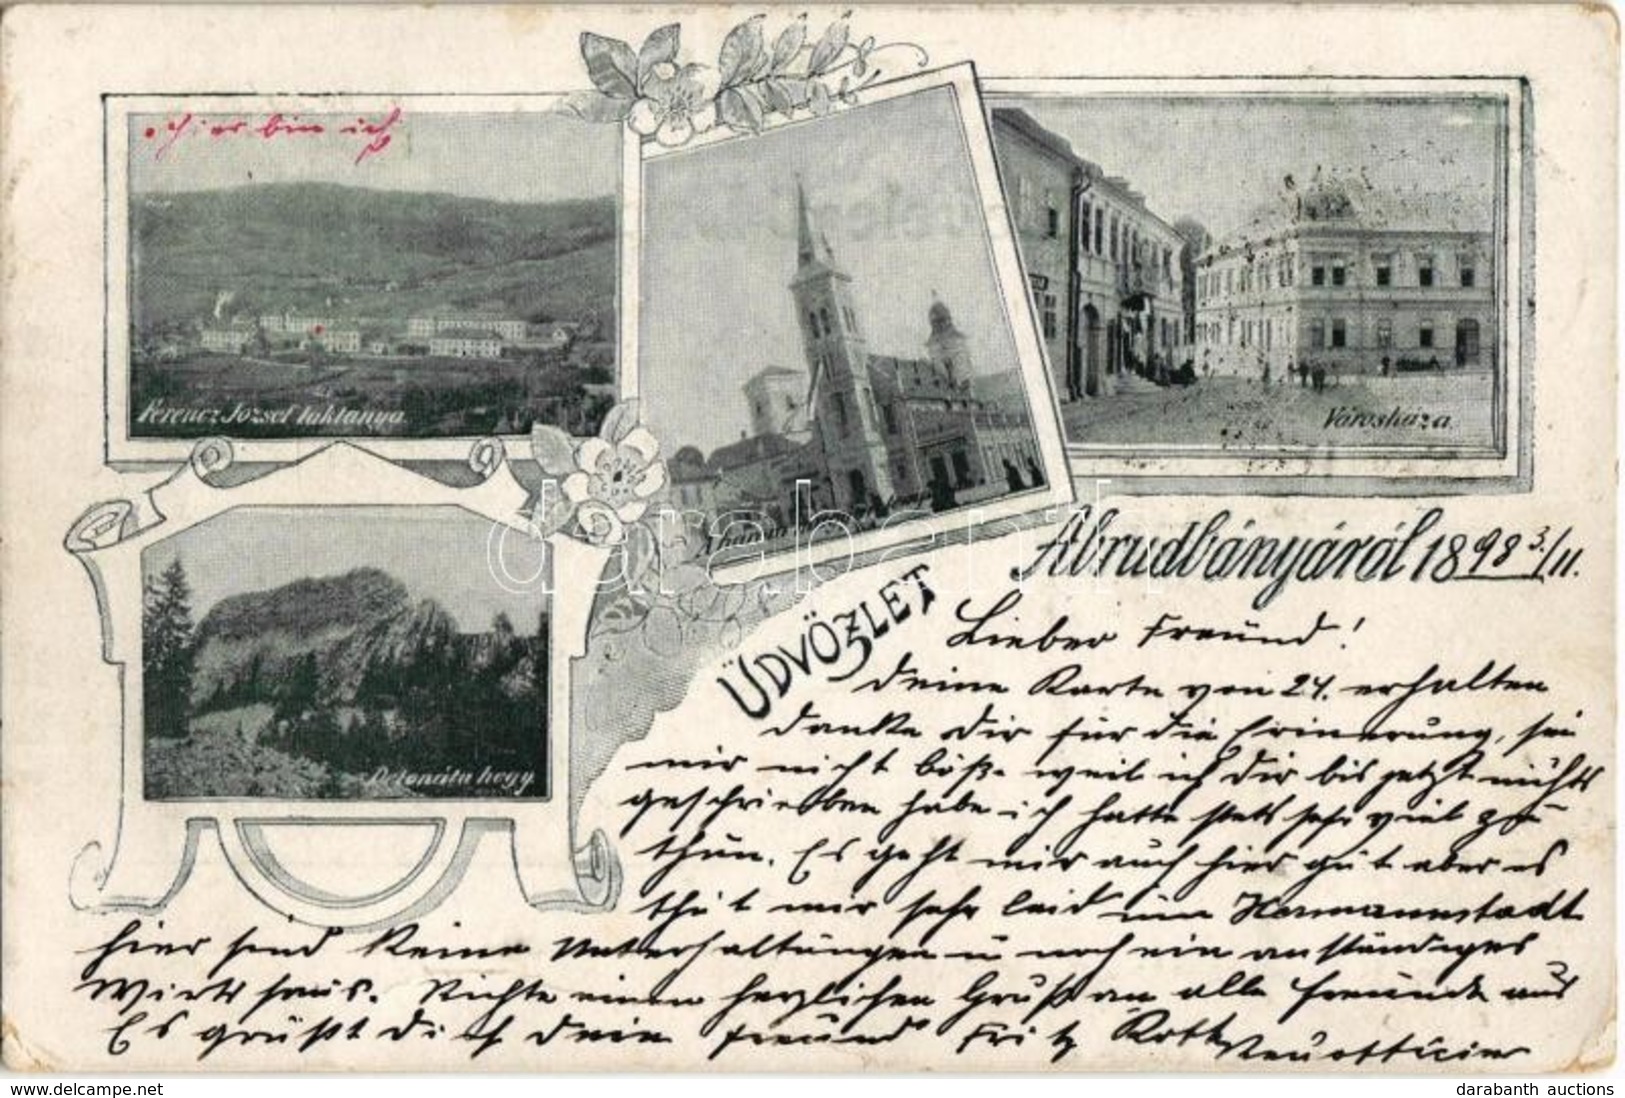 hier bin ich
Ferencz József laktanya.
Városháza
Detonáta hegy.
A három
darabanth
ÜDVÖZLET
Abrudbányáról 1898 3./11.
Lieber Freund!
deine Karte von 24. erhalten
danke dir für die Erinnerung, sei
mir nicht böß. weil ich dir bis jetzt nichts
geschrieben habe ich hatte stets sehr viel zu
thun. Es geht mir auch hier gut aber es
thut mir sehr leid um Hermannstadt
hier sind keine Unterhaltungen u noch ein anständiges
Wirtshaus. Richte einen herzlichen Gruß an alle Freunde aus
Es grüßt dich dein Freund Fritz Roth
www.delcampe.net
darabanth auctions